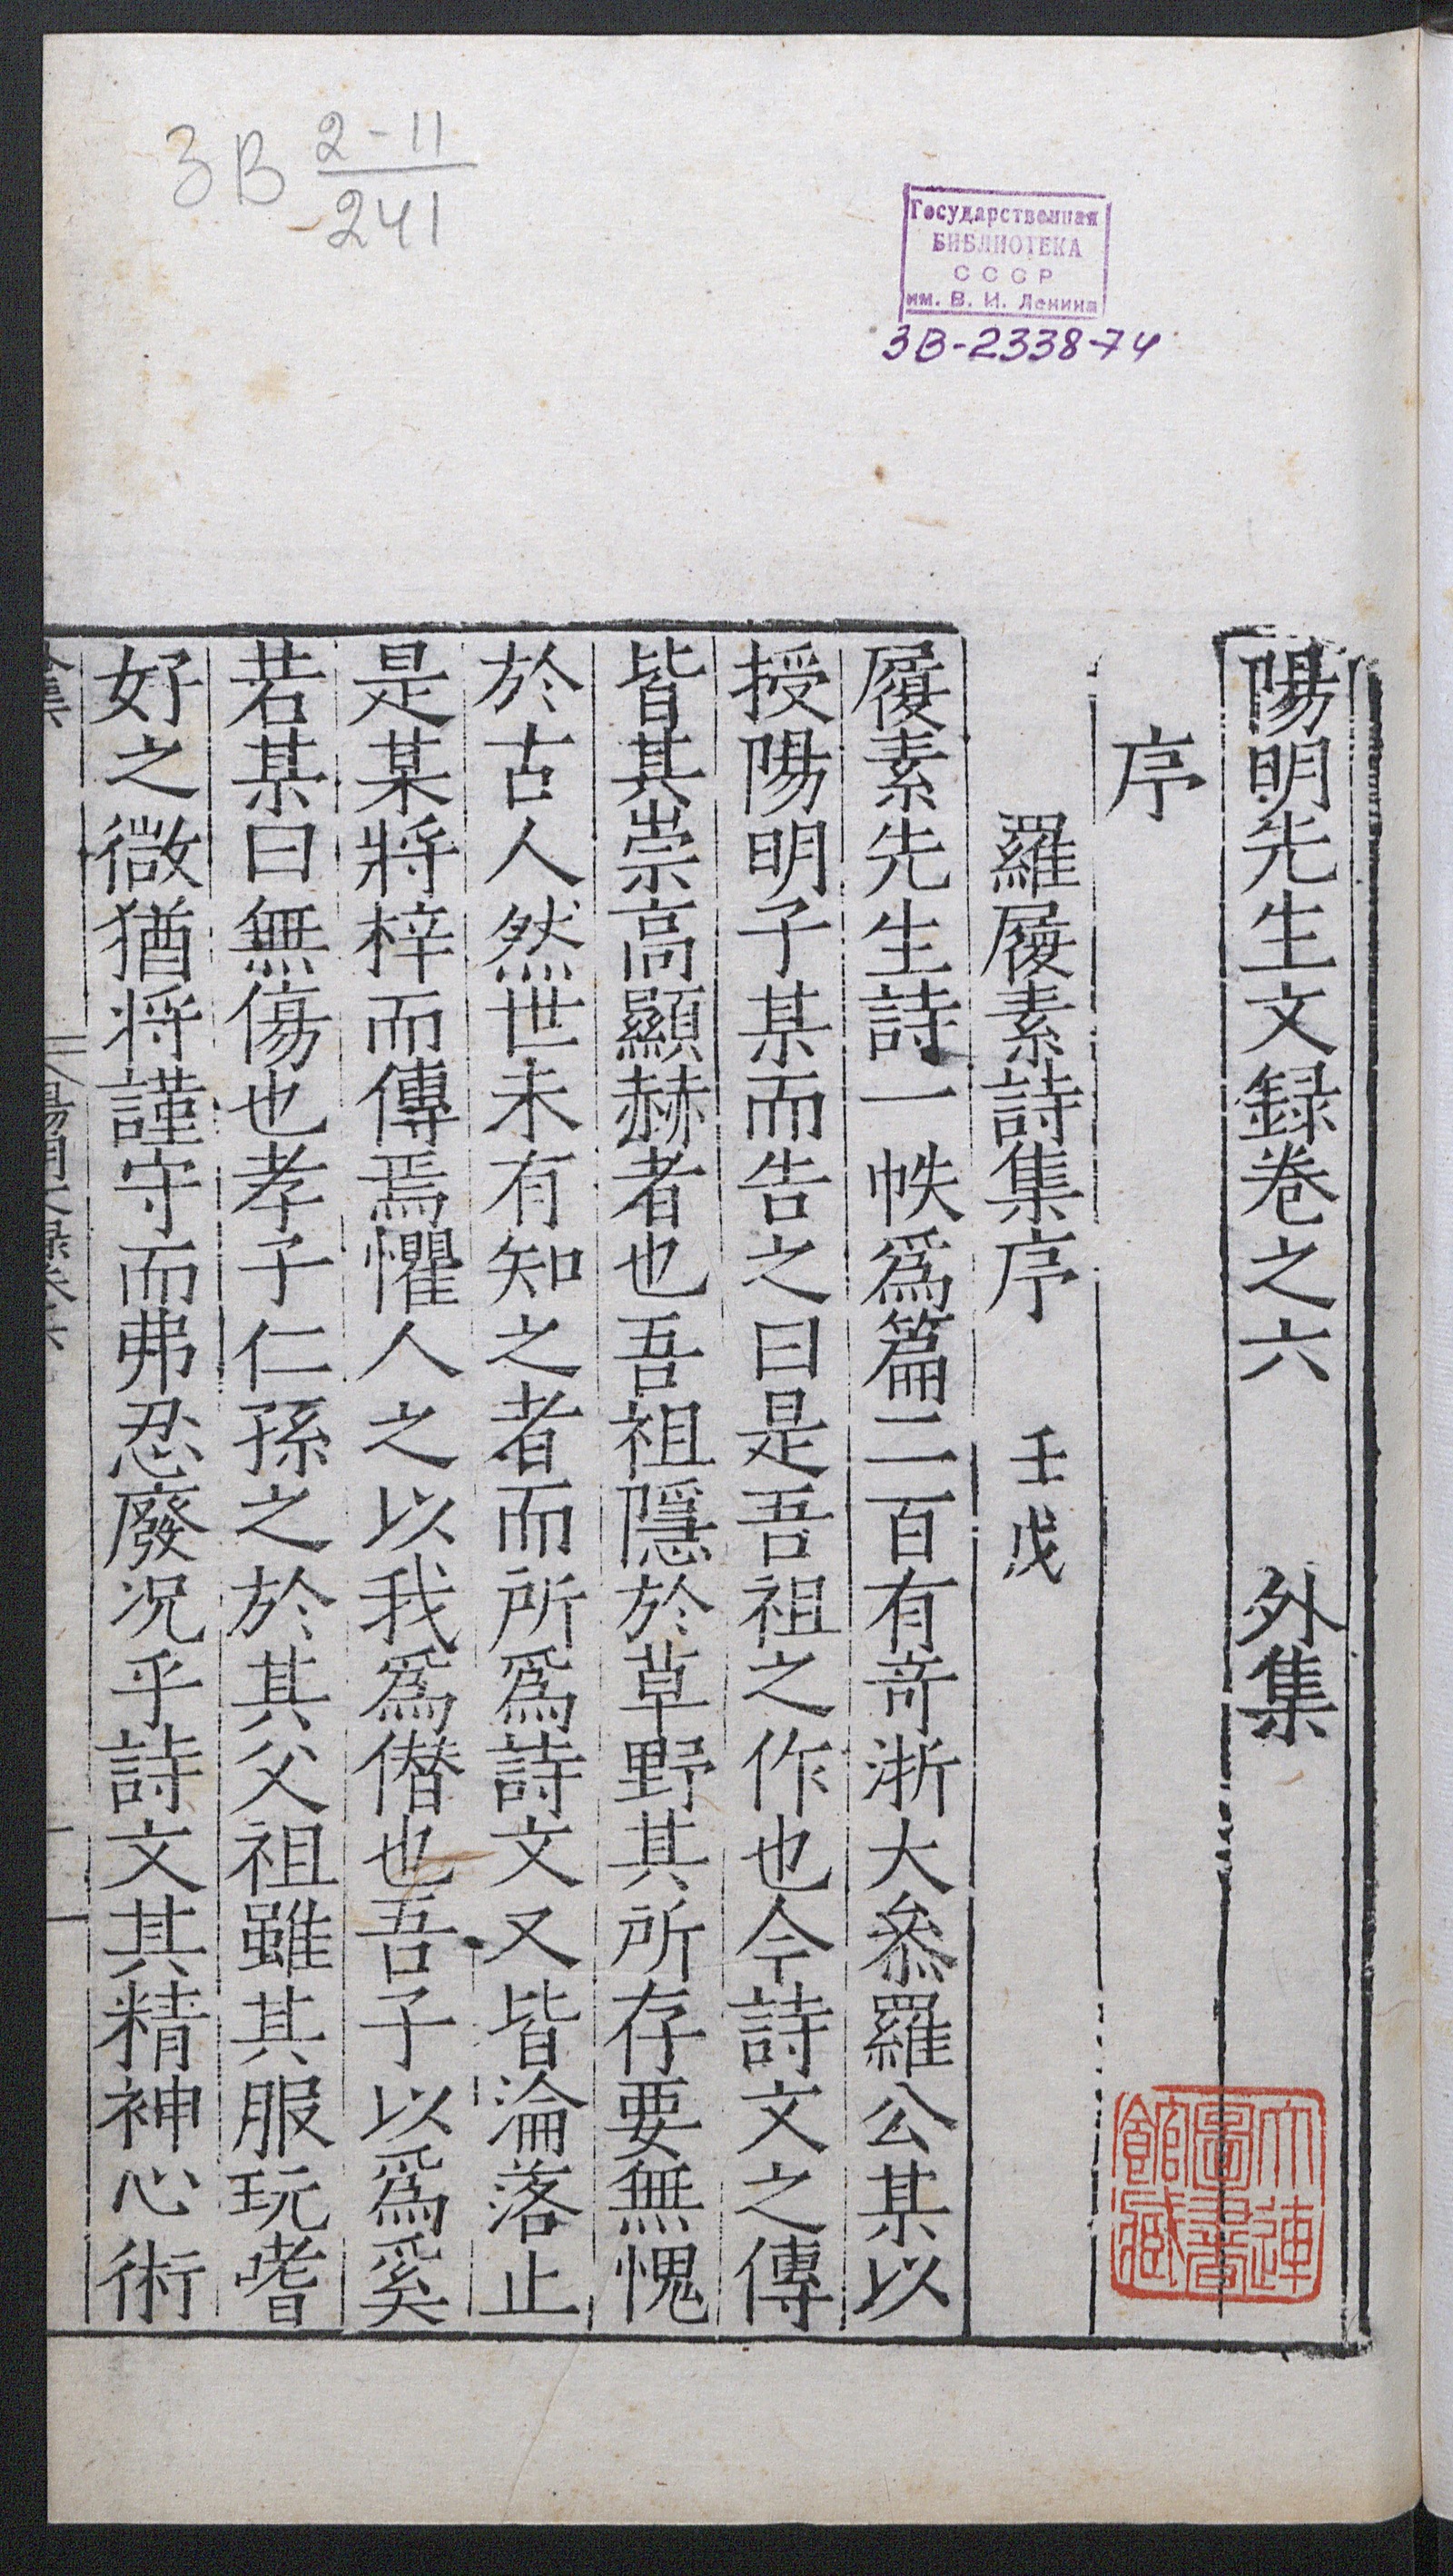 3B 2-11
241
Государственная
БИБЛИОТЕКА
СССР
им. В. И. Ленина
3B-2338-74
陽明先生文録卷之六 外集
序
羅履素詩集序 壬戌
履素先生詩一帙爲篇二百有奇浙大叅羅公某以
授陽明子某而告之曰是吾祖之作也今詩文之傳
皆其崇高顯赫者也吾祖隱於草野其所存要無愧
於古人然世未有知之者而所爲詩文又皆淪落止
是某將梓而傳焉懼人之以我爲僭也吾子以爲奚
若某曰無傷也孝子仁孫之於其父祖雖其服玩嗜
好之微猶将謹守而弗忍廢况乎詩文其精神心術
大連
圖書
館藏